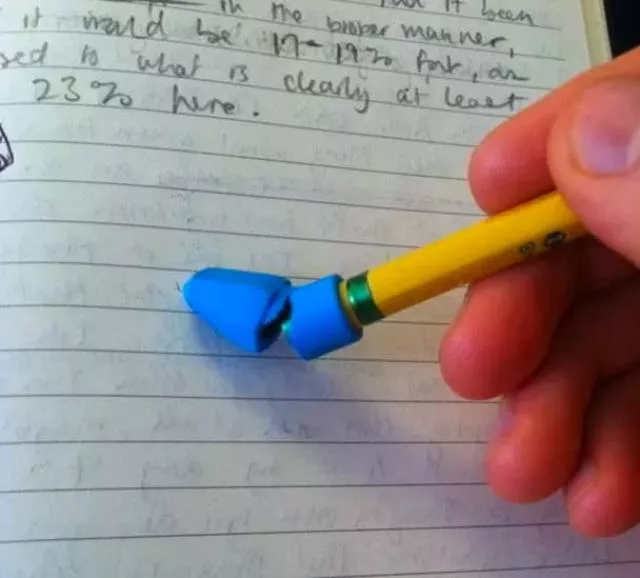 in the proper manner,
it would be 17-19% fat, as
sed to what is clearly at least
23% here.